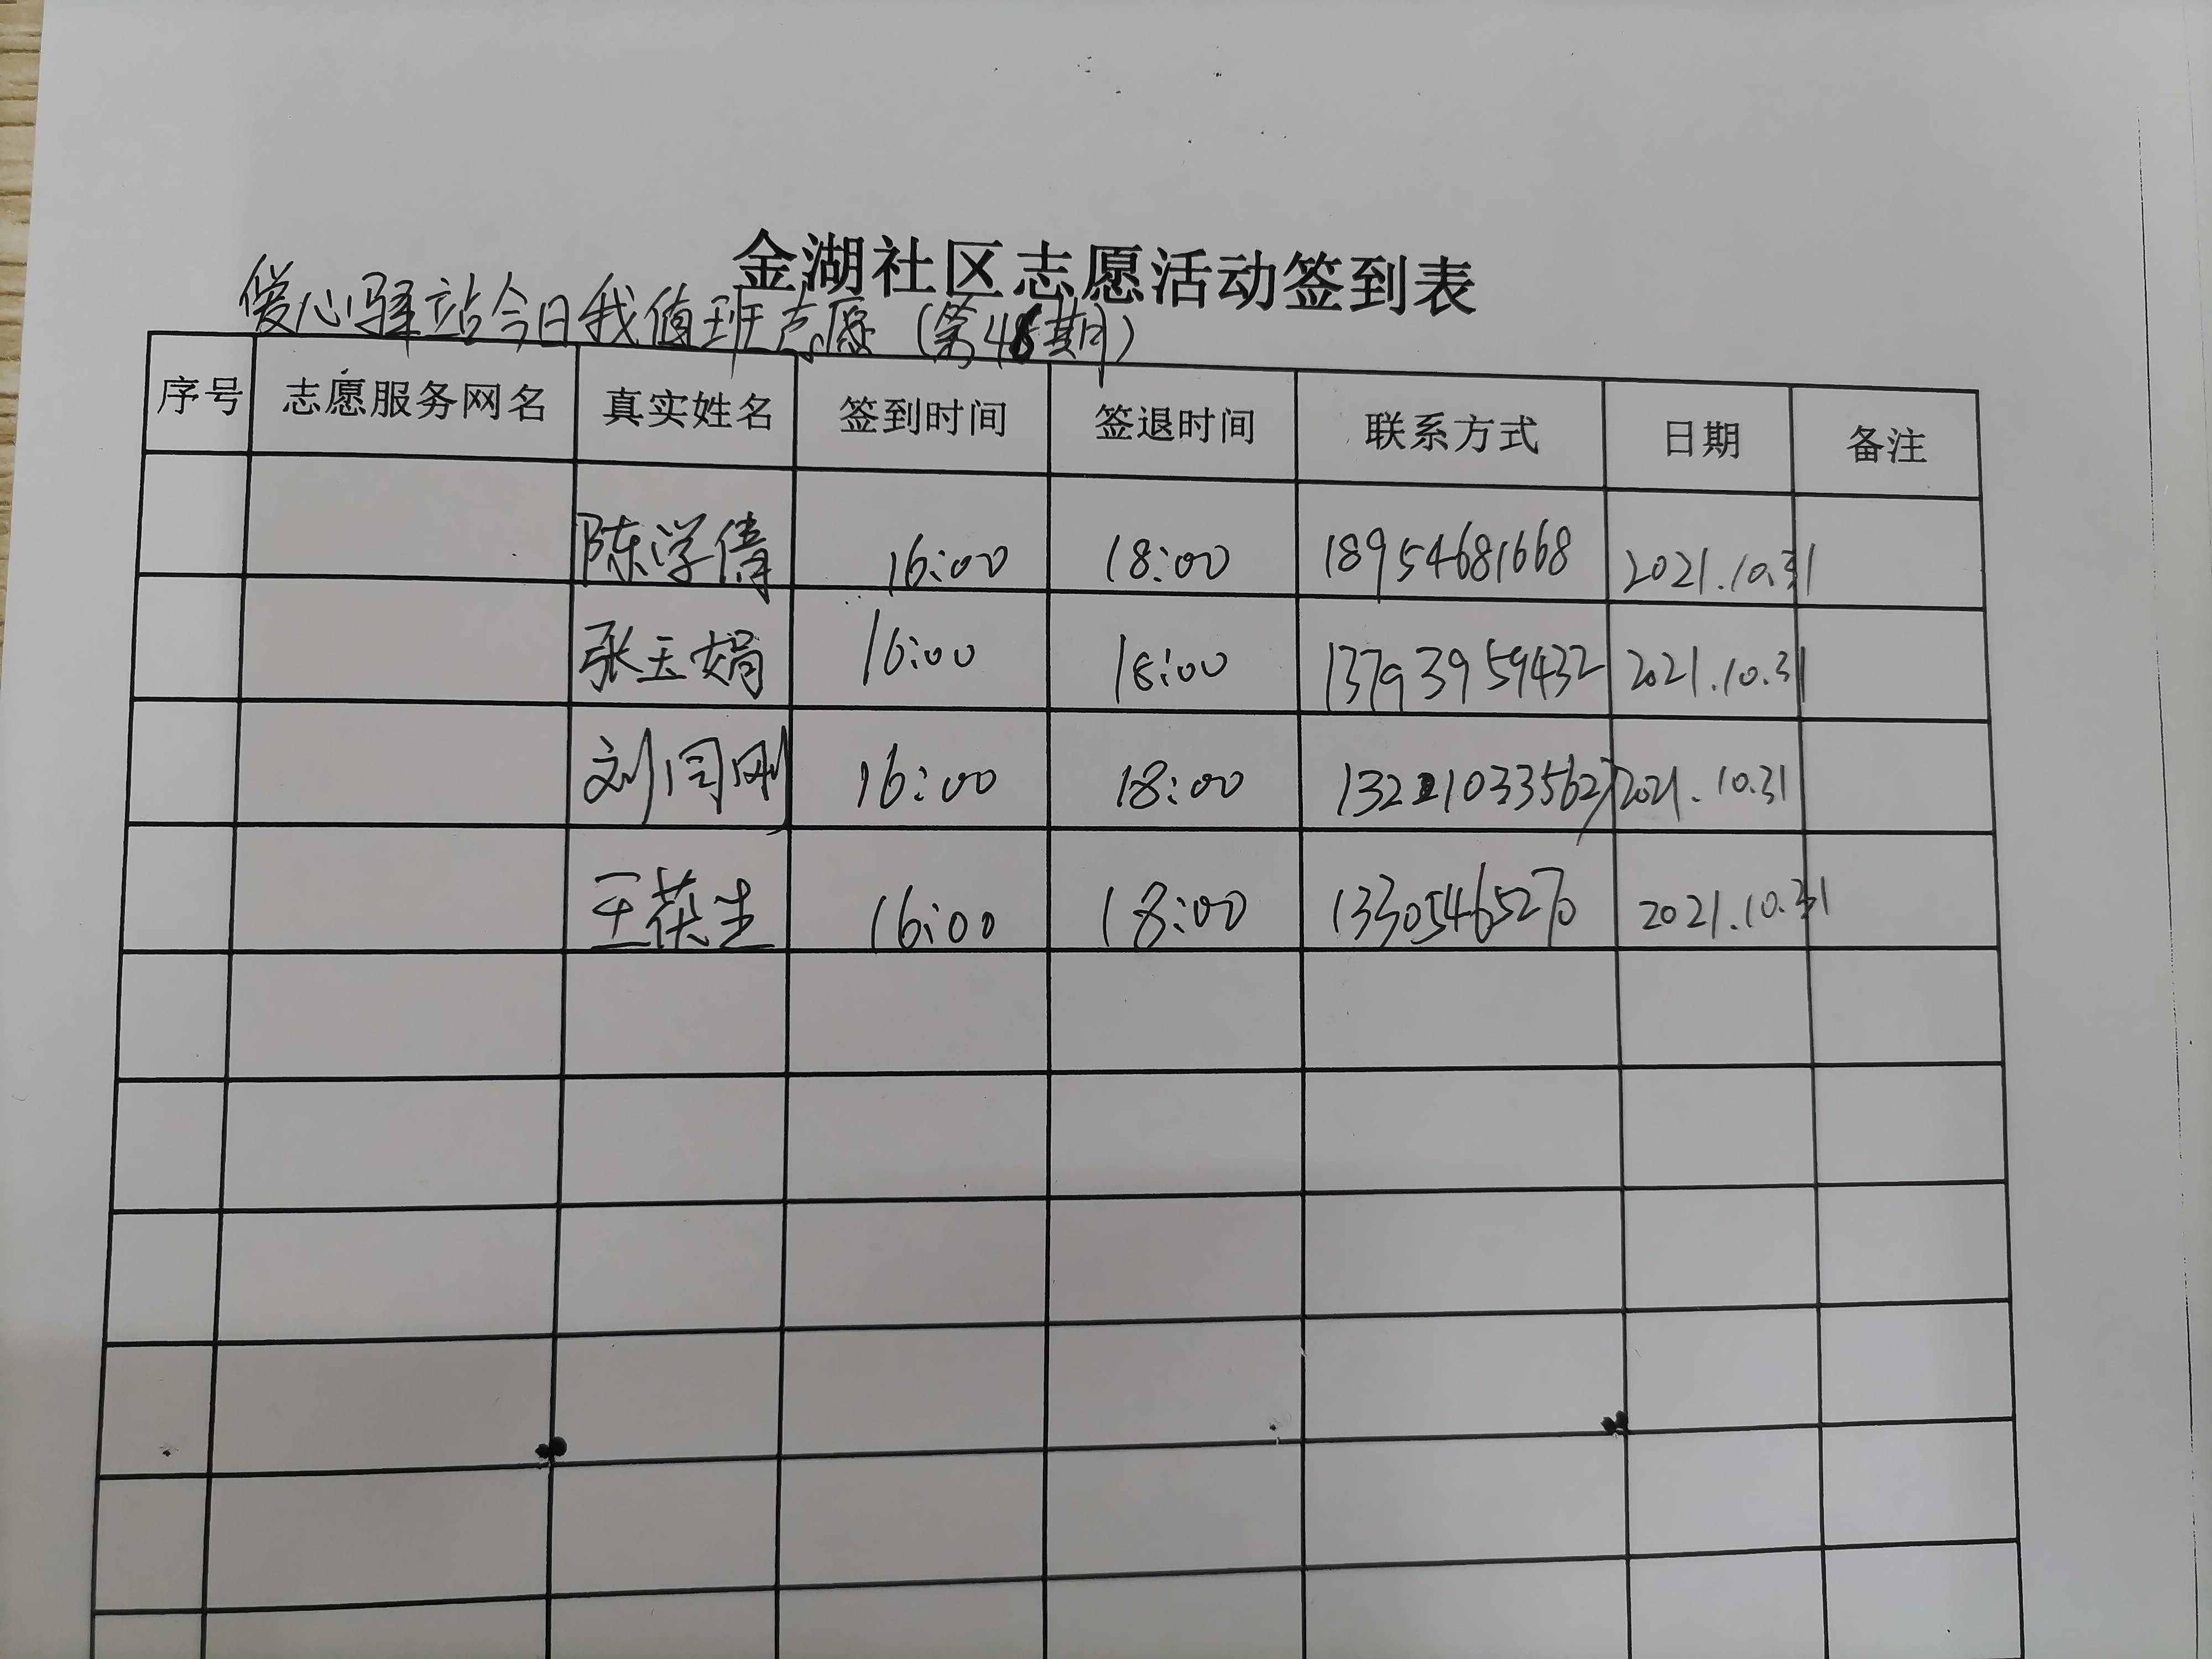 金湖社区志愿活动签到表
爱心驿站今日我值班志愿（第48期）
序号 志愿服务网名 真实姓名 签到时间 签退时间 联系方式 日期 备注
陈学倩 16:00 18:00 18954681668 2021.10.31
张玉娟 16:00 18:00 13793959432 2021.10.31
刘同刚 16:00 18:00 2021.10.31
王茯生 16:00 18:00 13305465270 2021.10.31